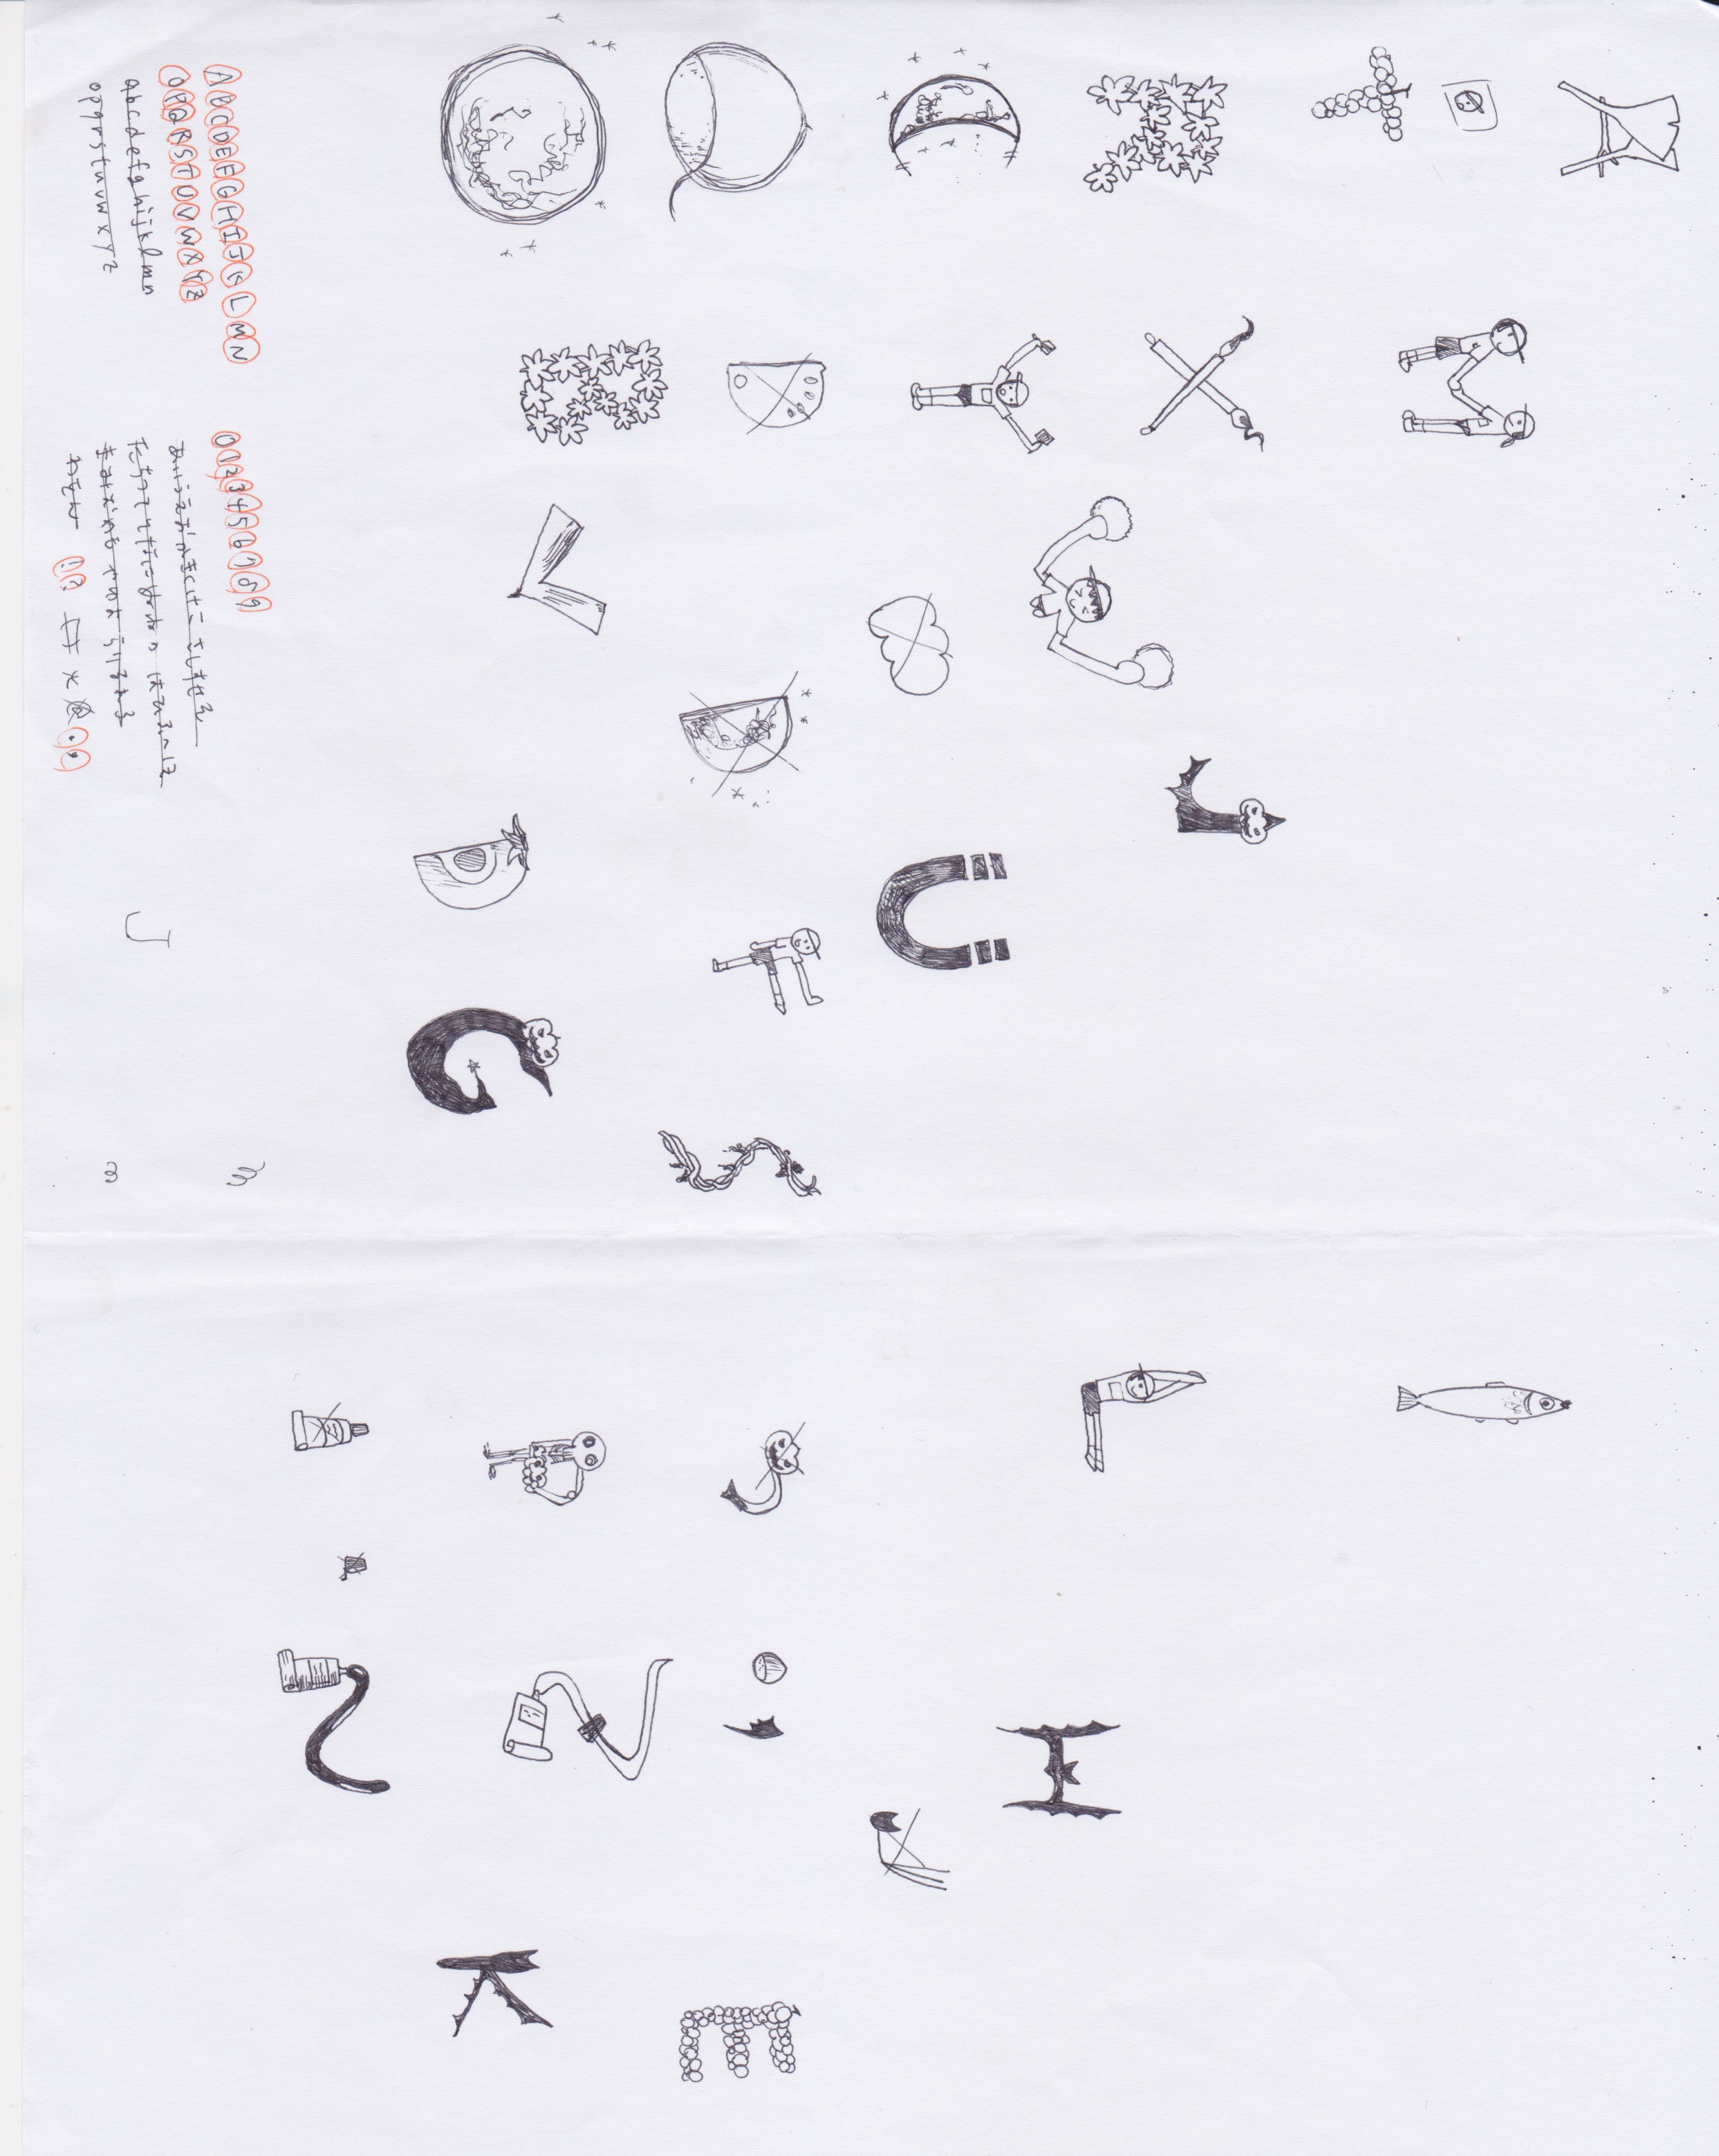 ABCDEFGHIJKLMN
OPQRSTUVWXYZ
abcdefghijklmn
opqrstuvwxyz
0123456789
あいうえおかきくけこさしすせそ
たちつてとなにぬねのはひふへほ
まみむめもやゆよらりるれろ
わをん !?
J